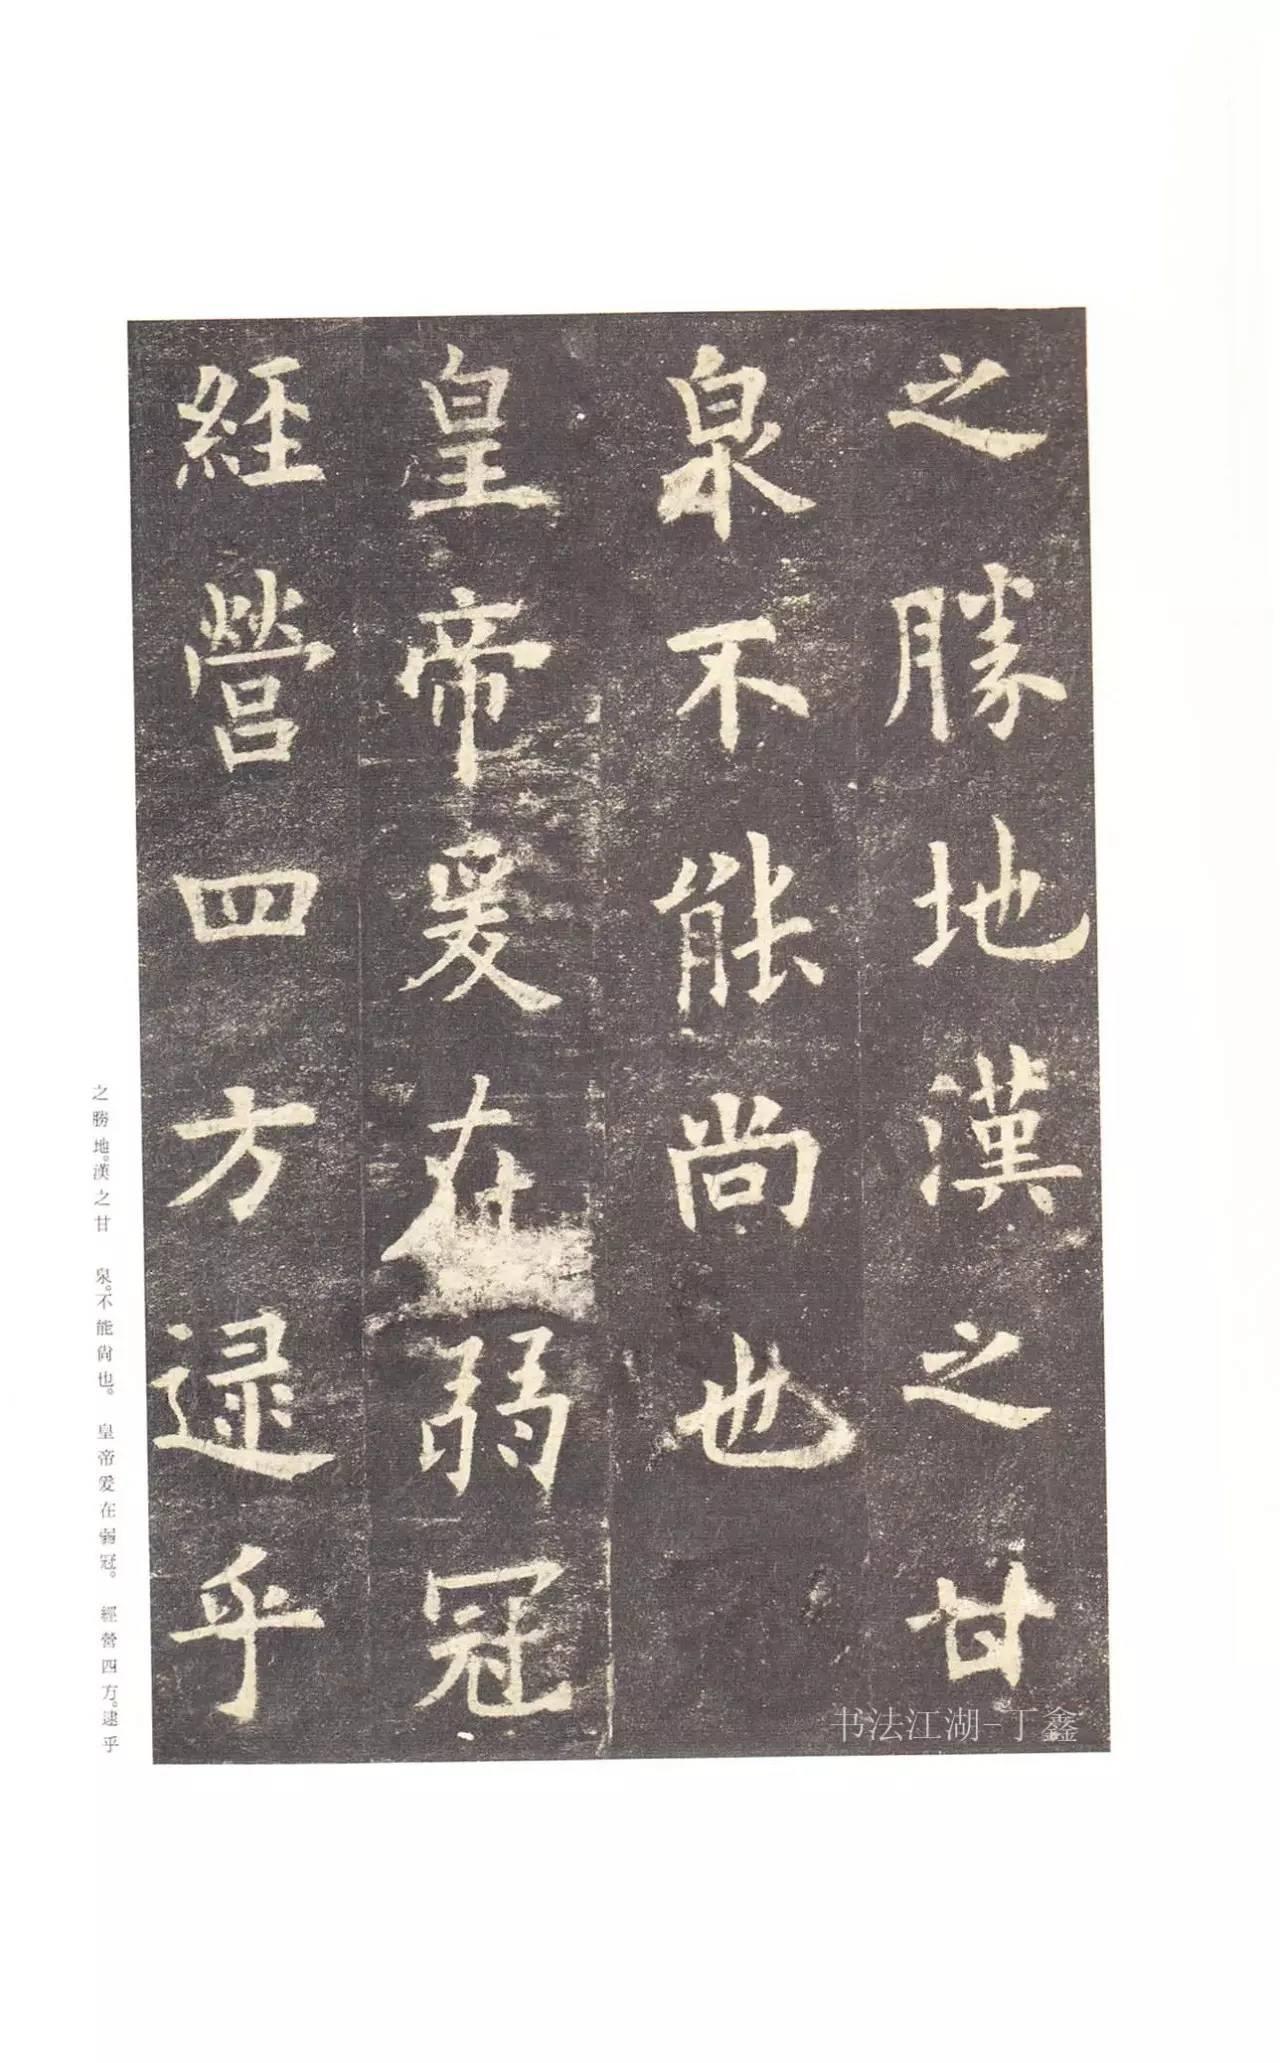 之勝地漢之甘
泉不能尚也
皇帝爰在弱冠
經營四方逯乎
之勝地。漢之甘　泉。不能尚也。　皇帝爰在弱冠。　經營四方。逮乎
书法江湖-丁鑫